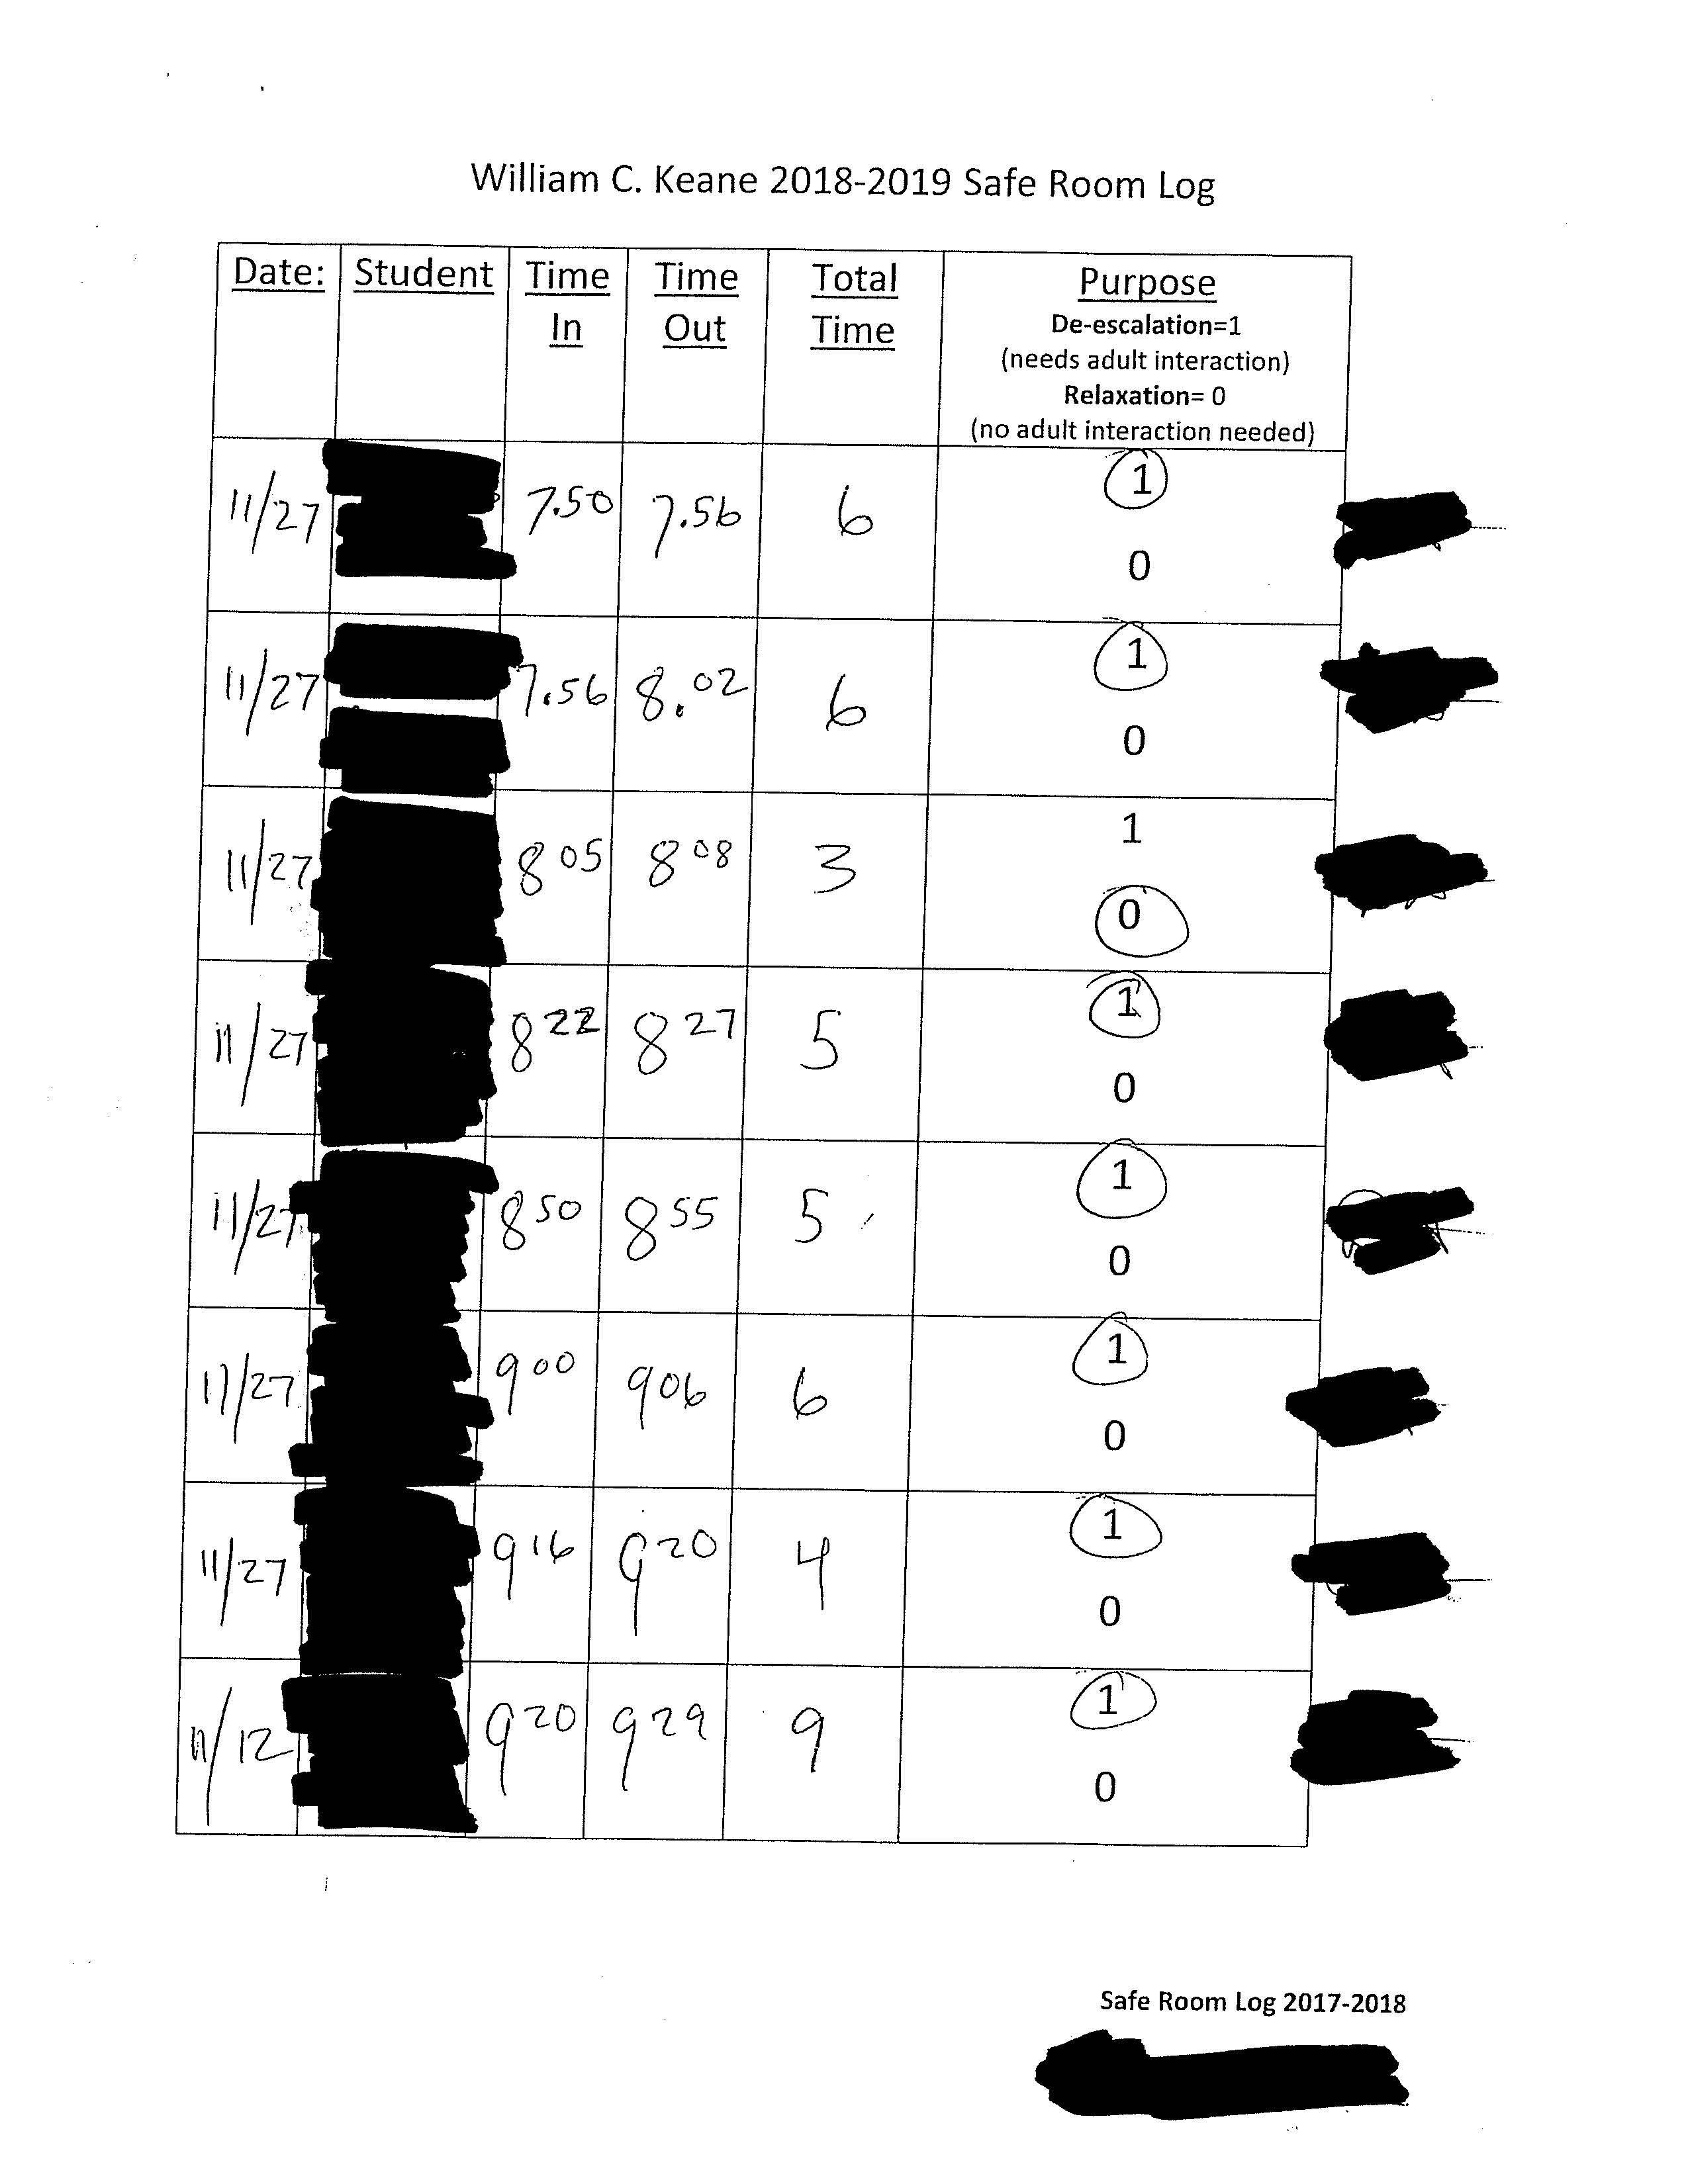 William C. Keane 2018-2019 Safe Room Log
Date: Student Time In Time Out Total Time Purpose
De-escalation=1
(needs adult interaction)
Relaxation= 0
(no adult interaction needed)
11/27 7.50 7.56 6 1
0
11/27 7.56 8.02 6 1
0
11/27 8 05 8 08 3 1
0
11/27 8 22 8 27 5 1
0
11/27 8 50 8 55 5 1
0
11/27 9 00 9 06 6 1
0
11/27 9 16 9 20 4 1
0
11/12 9 20 9 29 9 1
0
Safe Room Log 2017-2018